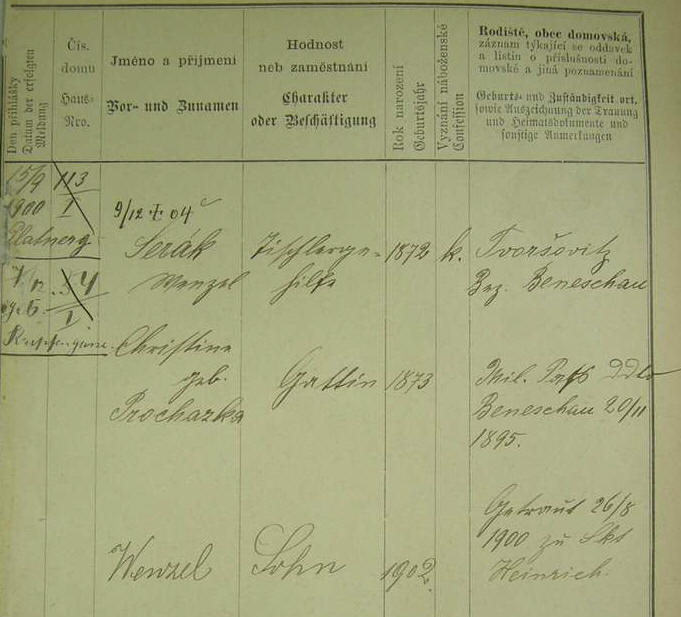 Den přihlášky
Datum der erfolgten
Meldung
Čís.
domu
Haus-
Nro.
Jméno a příjmení
Vor- und Zunamen
Hodnost
neb zaměstnání
Charakter
oder Beschäftigung
Rok narození
Geburtsjahr
Vyznání náboženské
Confession
Rodiště, obec domovská,
záznam týkající se oddavek
a listin o příslušnosti do-
movské a jiná poznamenání
Geburts- und Zuständigkeitsort,
sowie Aufzeichnung der Trauung
und Heimatsdokumente und
sonstige Anmerkungen
15/9 113
1900 I
Platnerg
9/12 04
Serák Tischlerge- 1872 k. Tvoršovitz
Wenzel hilfe Bez. Beneschau
7/12 54
I
Christine
geb. Gattin 1873 Mil. Pass ddto
Prochazka Beneschau 20/11
1895.
Getraut 26/8
1900 zu Skt
Wenzel Sohn 1902. Heinrich.